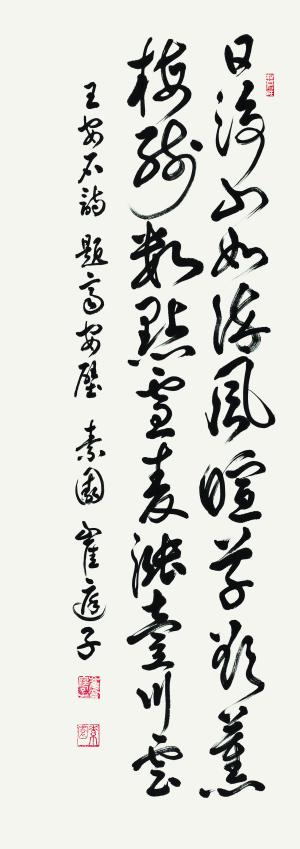 日淨山如染風暄草欲薰
梅殘數點雪麥漲壹川雲
王安石詩 題齊安壁 素園 崔庭子